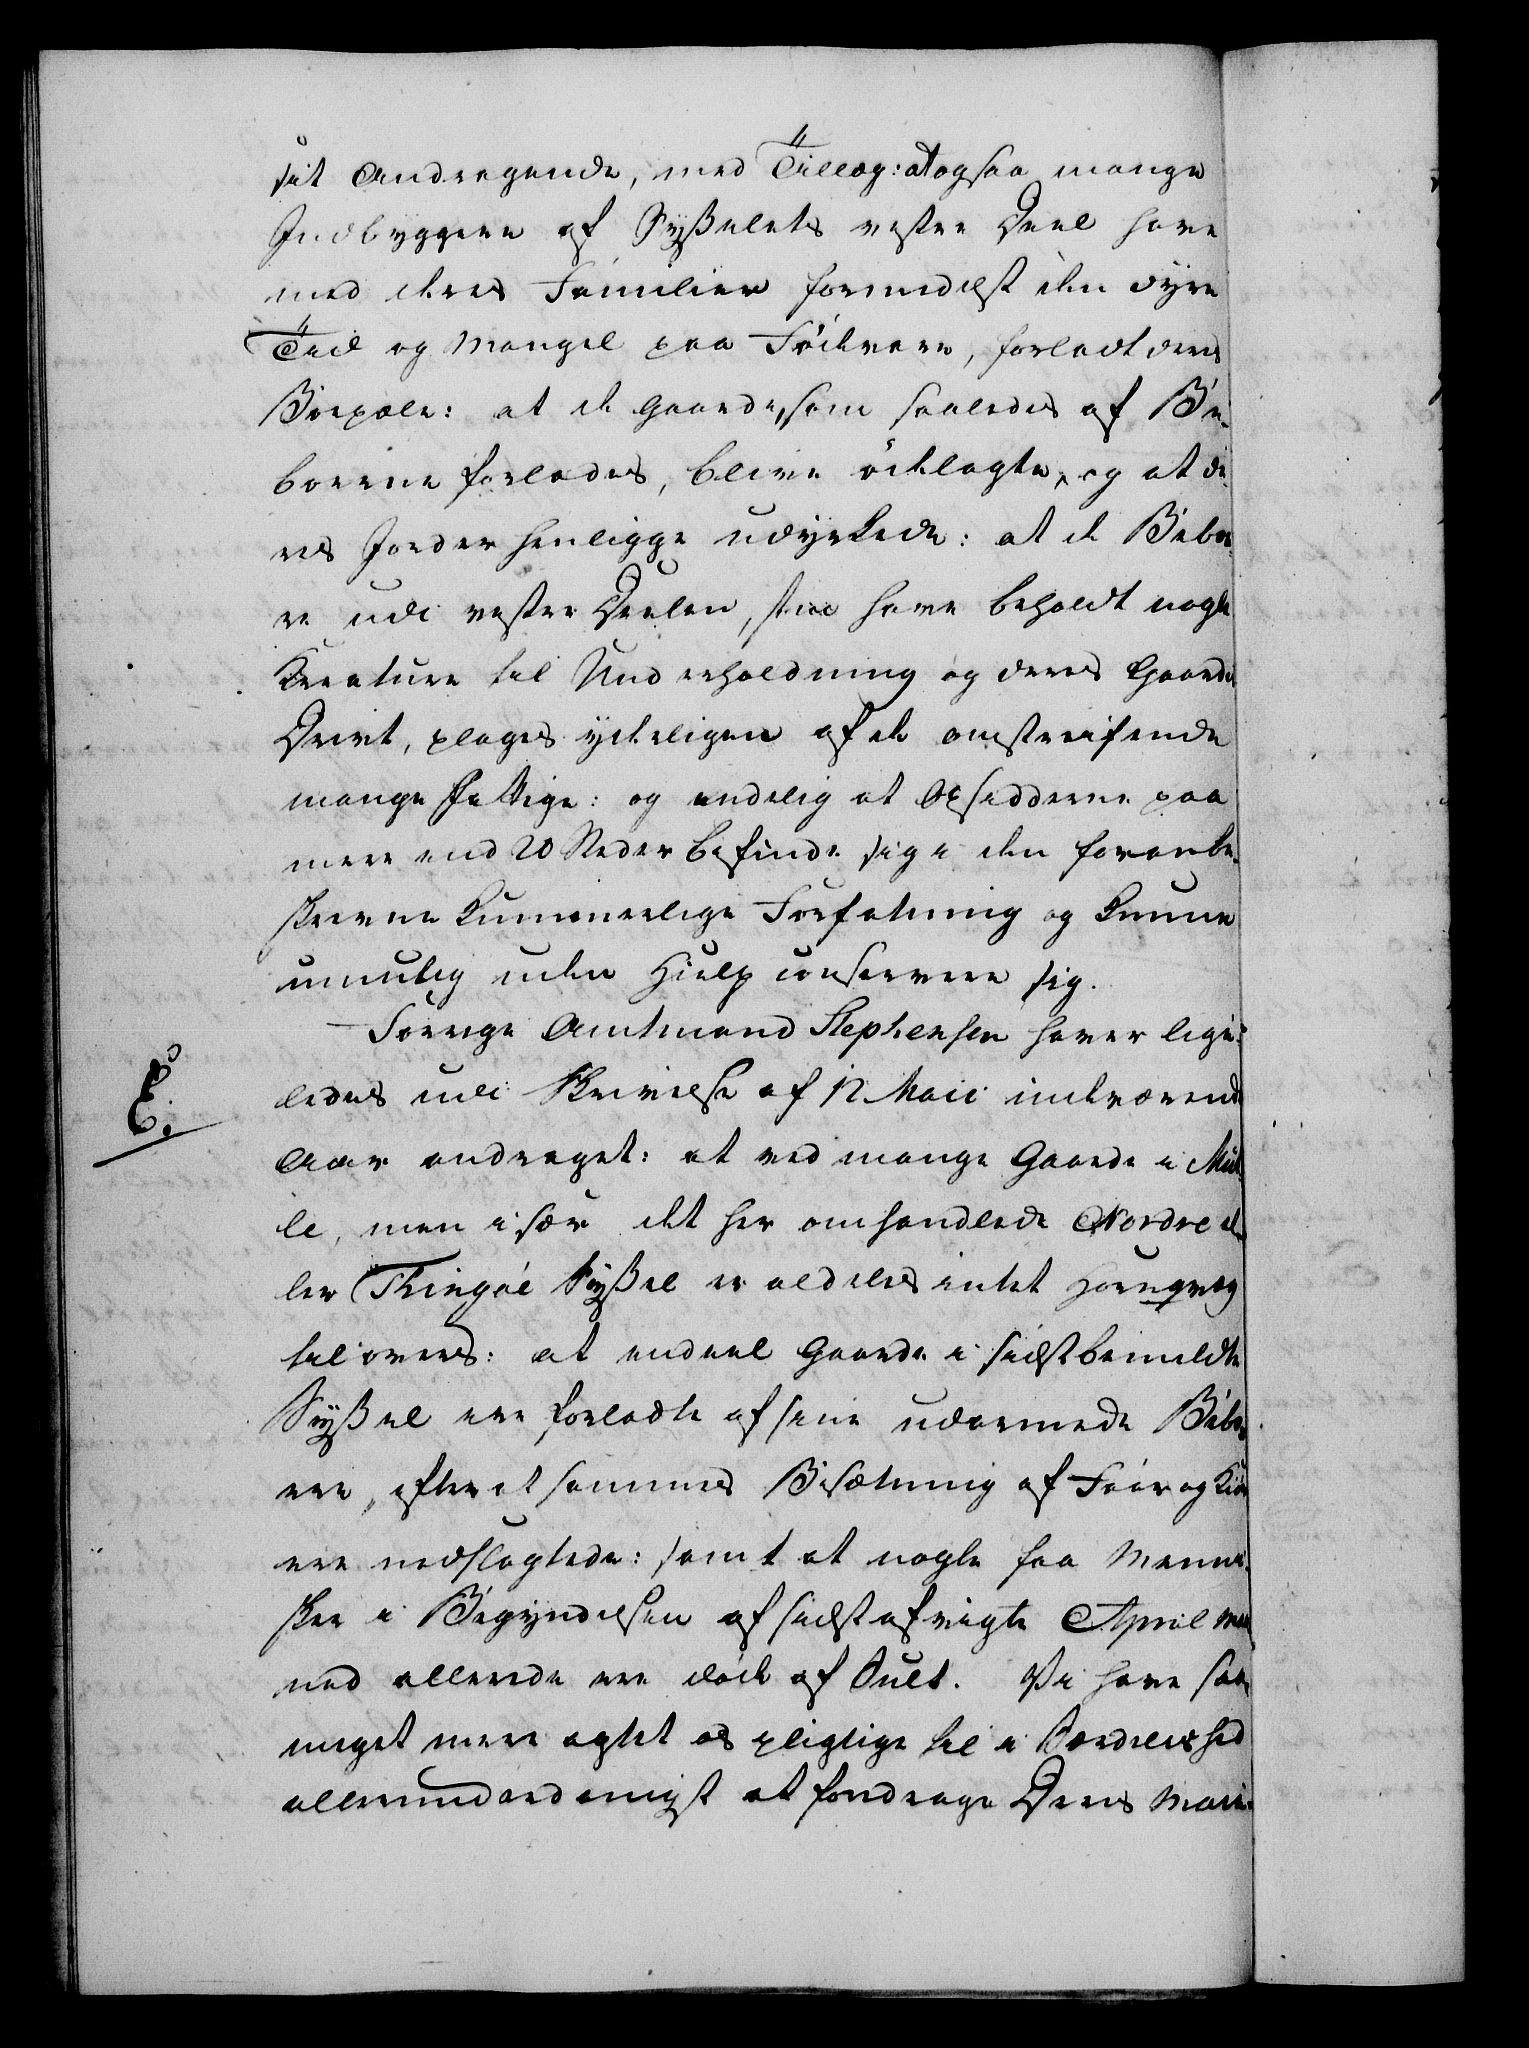 sit Andragende, med Tillæg: at ogsaa mange
Indbyggere af Syßelets vestre Deel have
med deres Familier formedelst den dyre
Tiid og Mangel paa Födevare, forladt deres
Boepæle: at de Gaarde, som saaledes af Be-
boerne forlades, blive ödelagte, og at de-
res Jorder henligge udyrkede: at de Beboe-
re udi vestre Deelen, som have beholdt nogle
Kreature til Underholdning og deres Gaarde
Drivt, plages ydeligen af de omstreifende
mange Fattige: og endelig at Opsidderne paa
mere end 20 Steder befinde sig i den foranbe-
skrevne kummerlige Forfatning og kunne
umulig uden Hielp conservere sig.
Forrige Amtmand Stephensen haver lige-
ledes udi Skrivelse af 12 Maii indeværende
Aar andraget: at ved mange Gaarde i Mule,
le, men i sær det her omhandlede Nordre el-
ler Thingöe Syßel er aldeles intet Hornqvæg
tilovers: at endeel Gaarde i sidstbemeldte
Syßel ere forladte af sine udarmede Beboe-
ere, efter at sammes Besætning af Faar og Kiör
ere nedslagtede: samt at nogle faa Menne-
sker i Begyndelsen af sidstafvigte April Maa-
ned allerede ere döde af Sult. Vi have saa
meget mere agtet os pligtige til i Særdeleshed
allerunderdanigst at foredrage Deres Maje-
E.